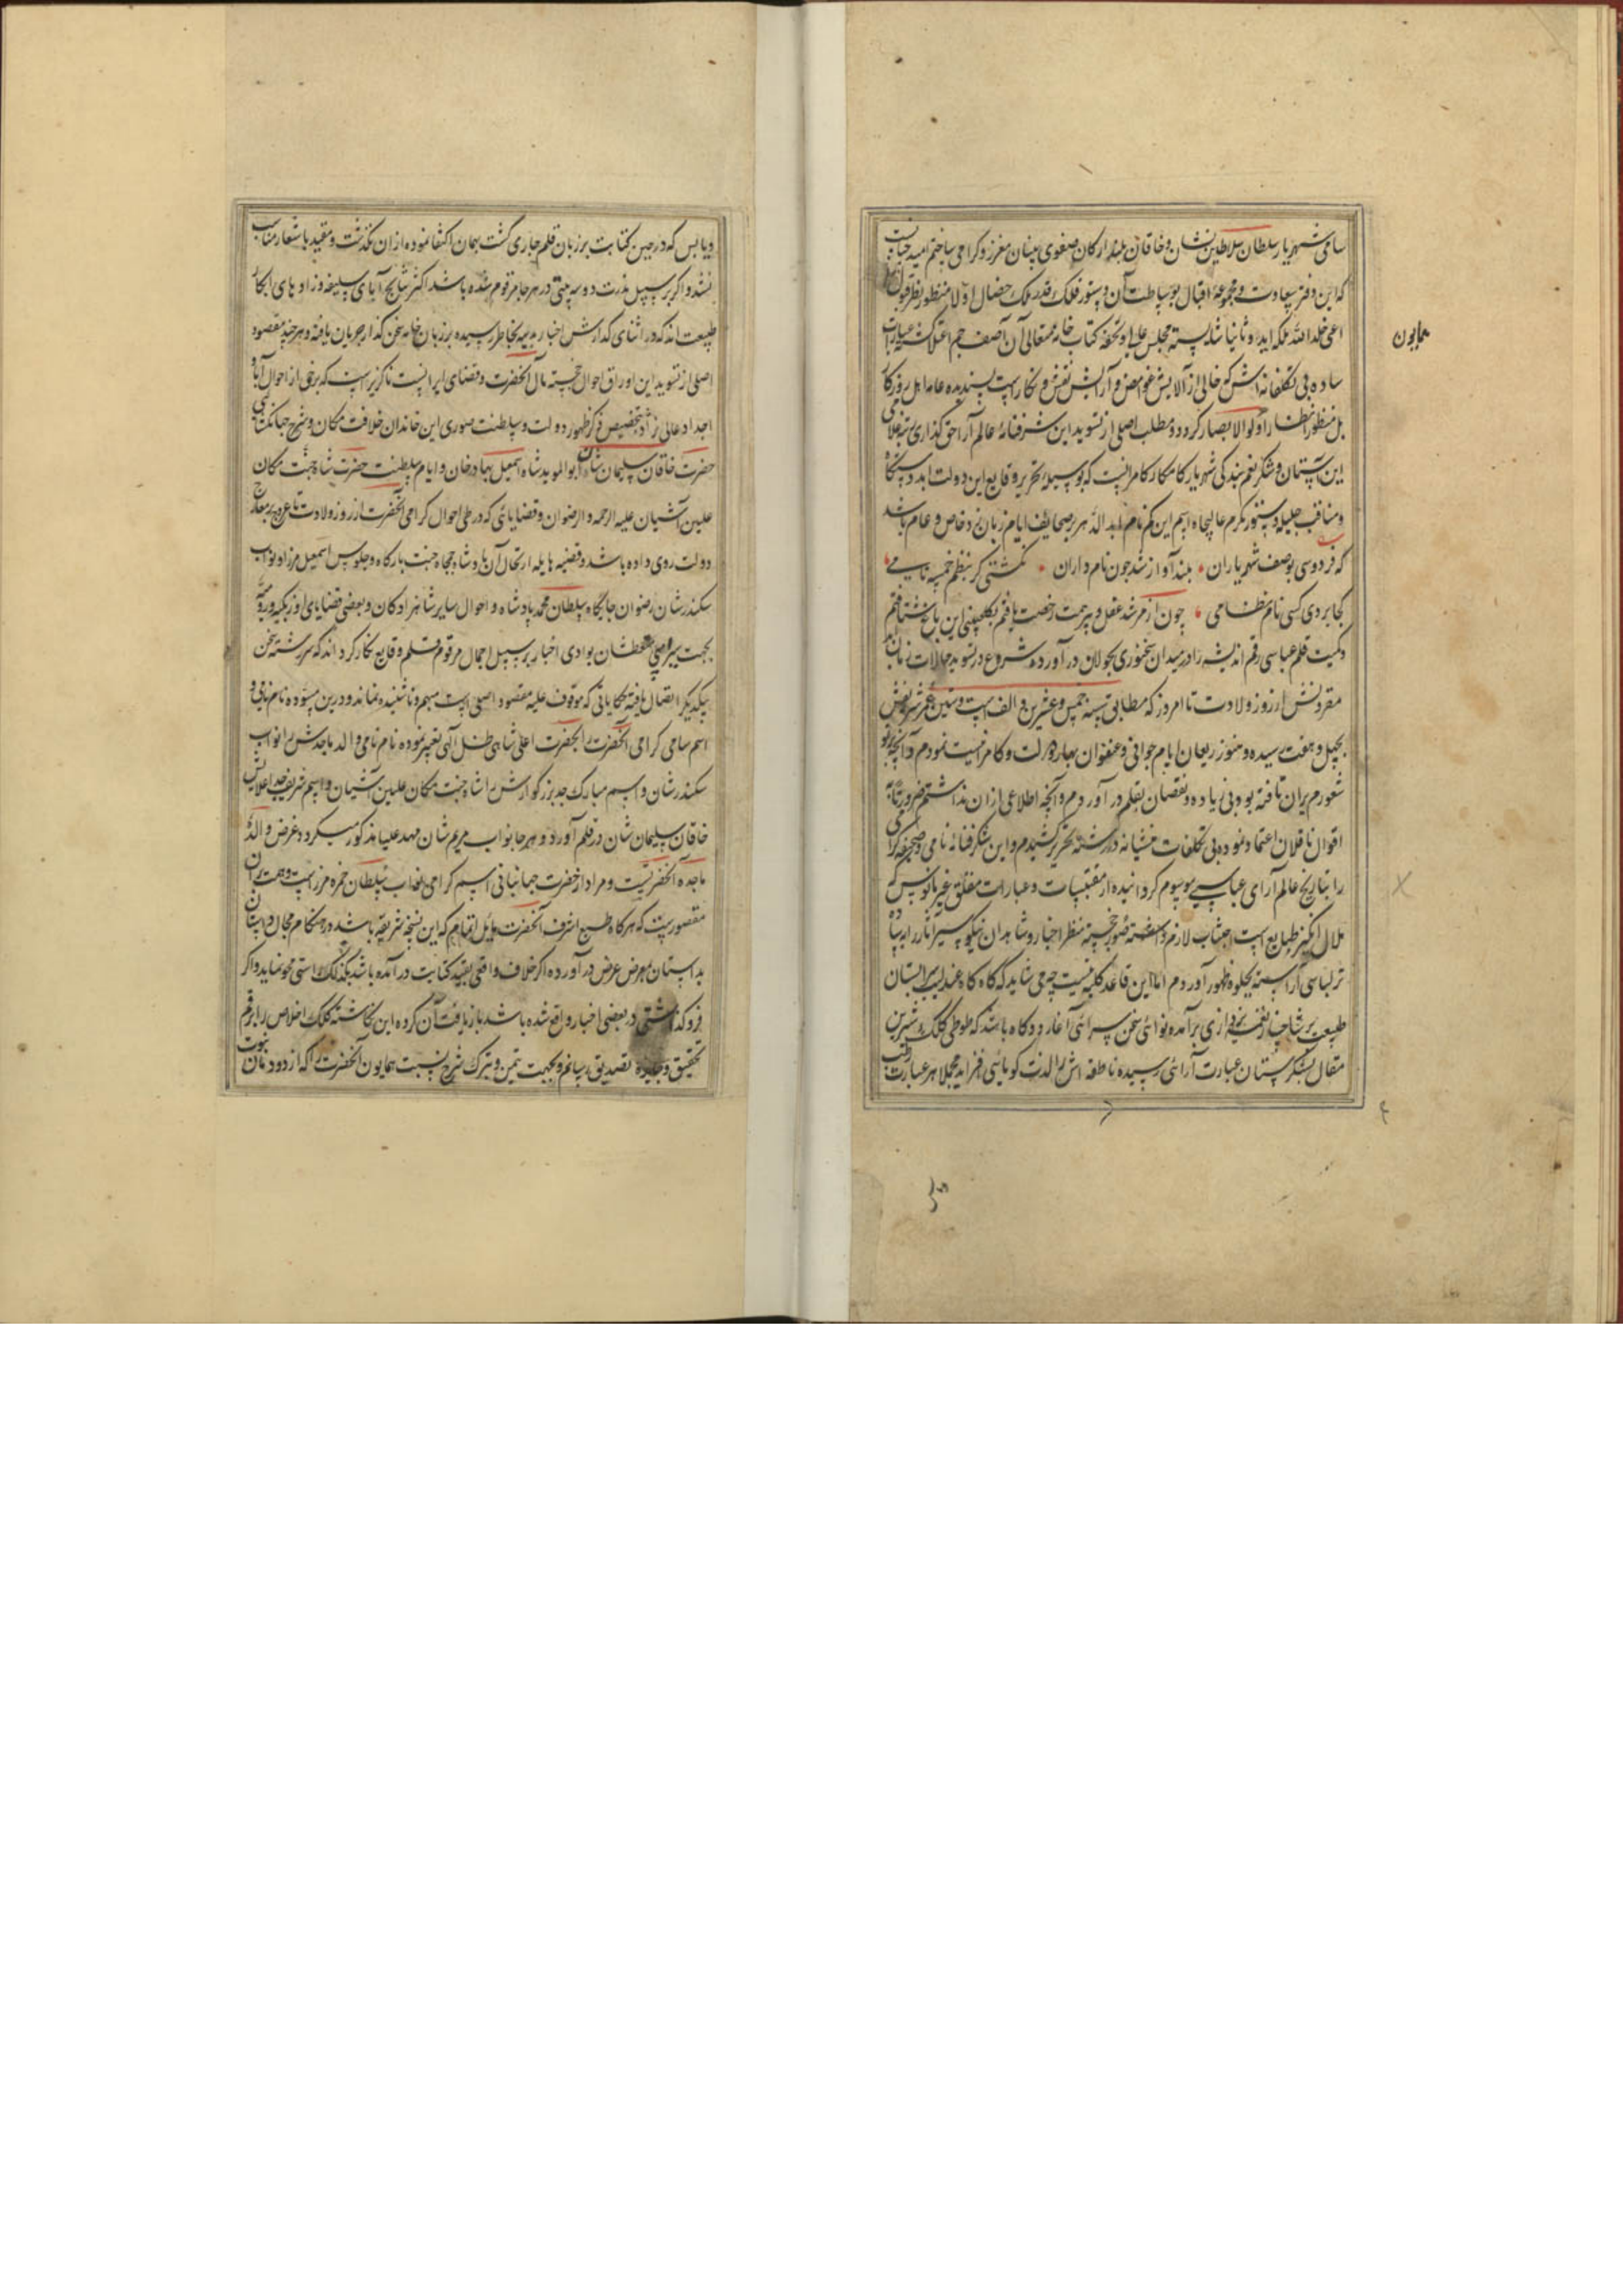 سامی شهریار سلطان سلاطین نشان و خاقان بلند ارکان صفوی بنیان معزز و گرامی ساختم امید چنانست
که این دفتر سعادت و مجموعهٔ اقبال بوساطت آن دستور فلک قدر ملک خصال اولا منظور نظر قبول
همایون
اعلی خلد الله ملکه ابدا و ثانیا شایسته مجلس عالی و تحفه کتاب خانه متعالی آن آصف جم اقتدار گشته عبارات
ساده بی تکلفانه اش که خالی از آلایش غوامض و آرایش نقش و نگارست پسندیده عامه اهل روزگار
بل منظور انظار اولوالابصار گردد و مطلب اصلی از تسوید این شگرفنامهٔ عالم آرا حق گذاری مرتبه غلامی
این آستان و شکر نعم بندگی شهریار کامکار کامرانیست که بوسیله تحریر وقایع این دولت ابد دستگاه
و مناقب جلیله دستور مکرم عالیجاه اسم این کم نام ابد الدهر بر صحایف ایام زبان زد خاص و عام باشد
که فردوسی بوصف شهریاران • بلند آوازه شد چون نام داران • نگشتی گر بنظم خمسه نامی
کجا بردی کسی نام نظامی • چون از مرشد عقل و پیر همت رخصت یافتم بگلچینی این باغ شتافتم
و کمیت قلم عباسی رقم اندیشه را در میدان سخنوری بجولان در آورده شروع در تسوید حالات زمان ابد
مقرونش از روز ولادت تا امروز که مطابق سنه خمس و عشرین و الف است و سنین عمر شریفش
بچهل و هفت رسیده و هنوز ریعان ایام جوانی و عنفوان بهار دولت و کامرانیست نمودم و آنچه پرتو
شعورم بر آن تافته بود بی زیاده و نقصان بقلم در آوردم و آنچه اطلاعی از آن نداشتم ضرورتا به
اقوال ناقلان اعتماد نموده بی تکلفات منشیانه در رشته تحریر کشیدم و این شگرفنامهٔ نامی و صحیفه گرامی
را بتاریخ عالم آرای عباسی موسوم گردانیده از مقتبسات و عبارات مغلق غیر مانوس که
ملال انگیز طبایع است اجتناب لازم دانسته صور خجسته منظر اخبار و شاهدان نیکو سیر آثار را به ساده
تر لباسی آراسته بجلوه ظهور آوردم اما این قاعده کلیه نیست چه می شاید که گاه گاه عندلیب سرابستان
طبیعت بر شاخسار نغمه پردازی بر آمده نوائی سخن سرائی آغازد و گاه باشد که طوطی کلک شیرین
مقال بشکرستان عبارت آرائی رسیده ناطقه اش را لذت گویائی افزاید مجملا هر عبارت رطب
و یابس که در حین کتابت بر زبان قلم جاری گشت بهمان اکتفا نموده از آن نگذشت و مقید باشعار مناسب
نشد و اگر بر سبیل ندرت دو سه بیتی در هر جا مرقوم شده باشد اکثر نتایج آبای سلیقه و زادهای ابکار
طبیعت اند که در اثنای گذارش اخبار بدیهه بخاطر رسیده بر زبان خامه سخن گذار جریان یافته و هر چند مقصود
اصلی از تسوید این اوراق احوال خجسته مآل آنحضرت و قضایای ایرانیست ناگزیر است که برخی از احوال آبا و
اجداد عالی نژاد بتخصیص ذکر ظهور دولت و سلطنت صوری این خاندان خلافت مکان و شرح جهانگشائی
حضرت خاقان سلیمان شان ابو الموید شاه اسمعیل بهادر خان و ایام سلطنت حضرت شاه جنت مکان
علیین آشیان علیه الرحمه و الرضوان و قضایائی که در طی احوال گرامی آنحضرت از روز ولادت تا عروج بر معارج
دولت روی داده باشد و قضیه هایله ارتحال آن پادشاه جمجاه جنت بارگاه و جلوس اسمعیل میرزا و نواب
سکندر شان رضوان جایگاه سلطان محمد پادشاه و احوال سایر شاهزادگان و بعضی قضایای اوزبکیه و رومیه
بجهت سیرابی عطشان بوادی اخبار بر سبیل اجمال مرقوم قلم وقایع نگار گرداند که سررشته سخن
بیکدیگر اتصال یافته حکایاتی که موقوف علیه مقصود اصلی است مبهم و ناشنیده نماند و درین مسوده نام نامی و
اسم سامی گرامی آنحضرت را بحضرت اعلی شاهی ظل آلهی تعبیر نموده نام نامی والد ماجدش را نواب
سکندر شان و اسم مبارک جد بزرگوارش را شاه جنت مکان علیین آشیان و اسم شریف جد اعلایش
خاقان سلیمان شان در قلم آورد و هر جا نواب مریم شان مهد علیا مذکور میگردد غرض والدهٔ
ماجده آنحضرتست و مراد از حضرت جهانبانی اسم گرامی نواب سلطان حمزه میرزاست و همت بر آن
مقصورست که هر گاه طبع اشرف آنحضرت مایل اتمام که این نسخه شریفه باشد در هنگام مجال داستان
بداستان بمعرض عرض در آورده اگر خلاف واقعی بقید کتابت در آمده باشد بگزلک راستی محو نماید و اگر
فروگذاشتی در بعضی اخبار واقع شده باشد بازیافت آن کرده این نگاشته کلک اخلاص را برقم
تحقیق و جایزه تصدیق رسانم و بجهت تیمن و تبرک شرح نسبت همایون آنحضرت را که از دودمان نبوت